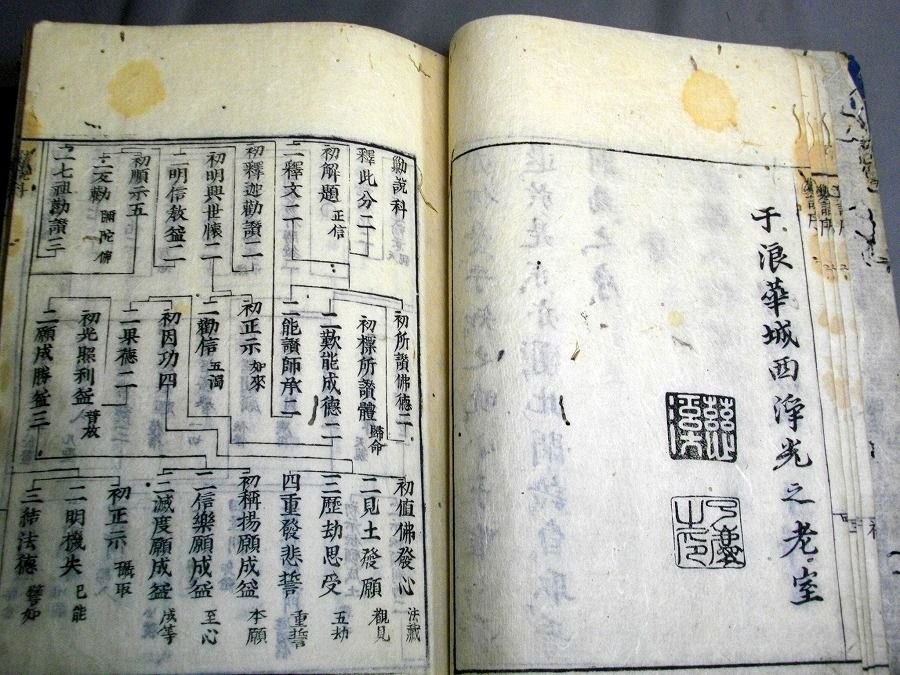 于浪華城西淨光之老室
慈溪
勸説科
釋此分二
初解題 正信
二釋文二
初釋迦勸讚二
初明興世懷二
二明信教益二
初順示五
二友勸
二七祖勸讚三
初所讚佛德二
初標所讚體 歸命
二歎能成德二
二能讚師承二
初正示 如來
二勸信 五濁
初因功四
二果德二
初光照利益 普放
二願成勝益三
初值佛發心 法藏
二見土發願 覩見
三歷劫思受 五劫
四重發悲誓 重誓
初稱揚願成益 本願
二信樂願成益 至心
三滅度願成益 成等
初正示 攝取
二明機失 已能
三結法德 譬如